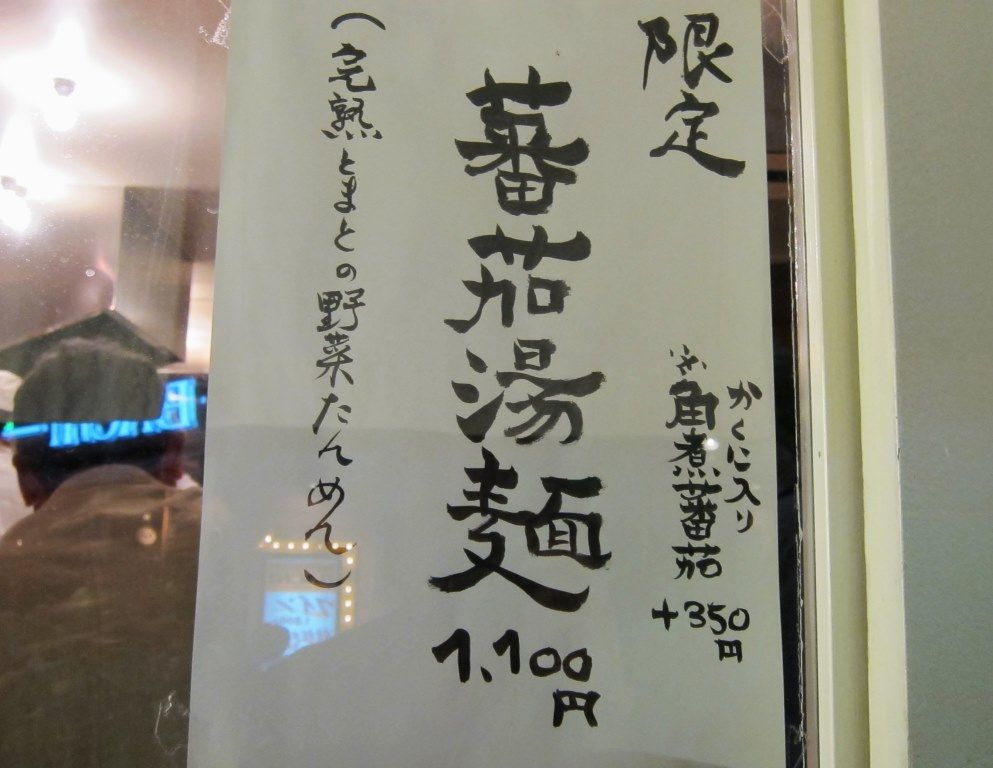 限定
蕃茄湯麺
1,100円
(完熟とまとの野菜たんめん)
かくに入り
※角煮蕃茄
+350円
ワイン